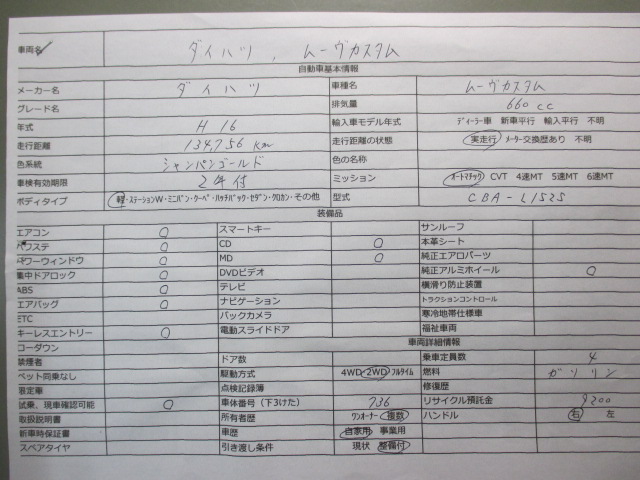 車両名 ダイハツ , ムーヴカスタム
自動車基本情報
メーカー名 ダイハツ 車種名 ムーヴカスタム
グレード名 排気量 660cc
年式 H16 輸入車モデル年式 ディーラー車 新車平行 輸入平行 不明
走行距離 134,756 km 走行距離の状態 実走行 メーター交換歴あり 不明
色系統 シャンパンゴールド 色の名称
車検有効期限 2年付 ミッション オートマチック CVT 4速MT 5速MT 6速MT
ボディタイプ 軽・ステーションW・ミニバン・クーペ・ハッチバック・セダン・クロカン・その他 型式 CBA-L152S
装備品
エアコン ○ スマートキー サンルーフ
パワステ ○ CD ○ 本革シート
パワーウィンドウ ○ MD ○ 純正エアロパーツ
集中ドアロック ○ DVDビデオ 純正アルミホイール ○
ABS ○ テレビ 横滑り防止装置
エアバッグ ○ ナビゲーション トラクションコントロール
ETC バックカメラ 寒冷地帯仕様車
キーレスエントリー ○ 電動スライドドア 福祉車両
ローダウン 車両詳細情報
禁煙者 ドア数 乗車定員数 4
ペット同乗なし 駆動方式 4WD 2WD フルタイム 燃料 ガソリン
限定車 点検記録簿 修復歴
試乗、現車確認可能 ○ 車体番号（下3けた） 736 リサイクル預託金 9200
取扱説明書 所有者歴 ワンオーナー 複数 ハンドル 右 左
新車時保証書 車歴 自家用 事業用
スペアタイヤ 引き渡し条件 現状 整備付